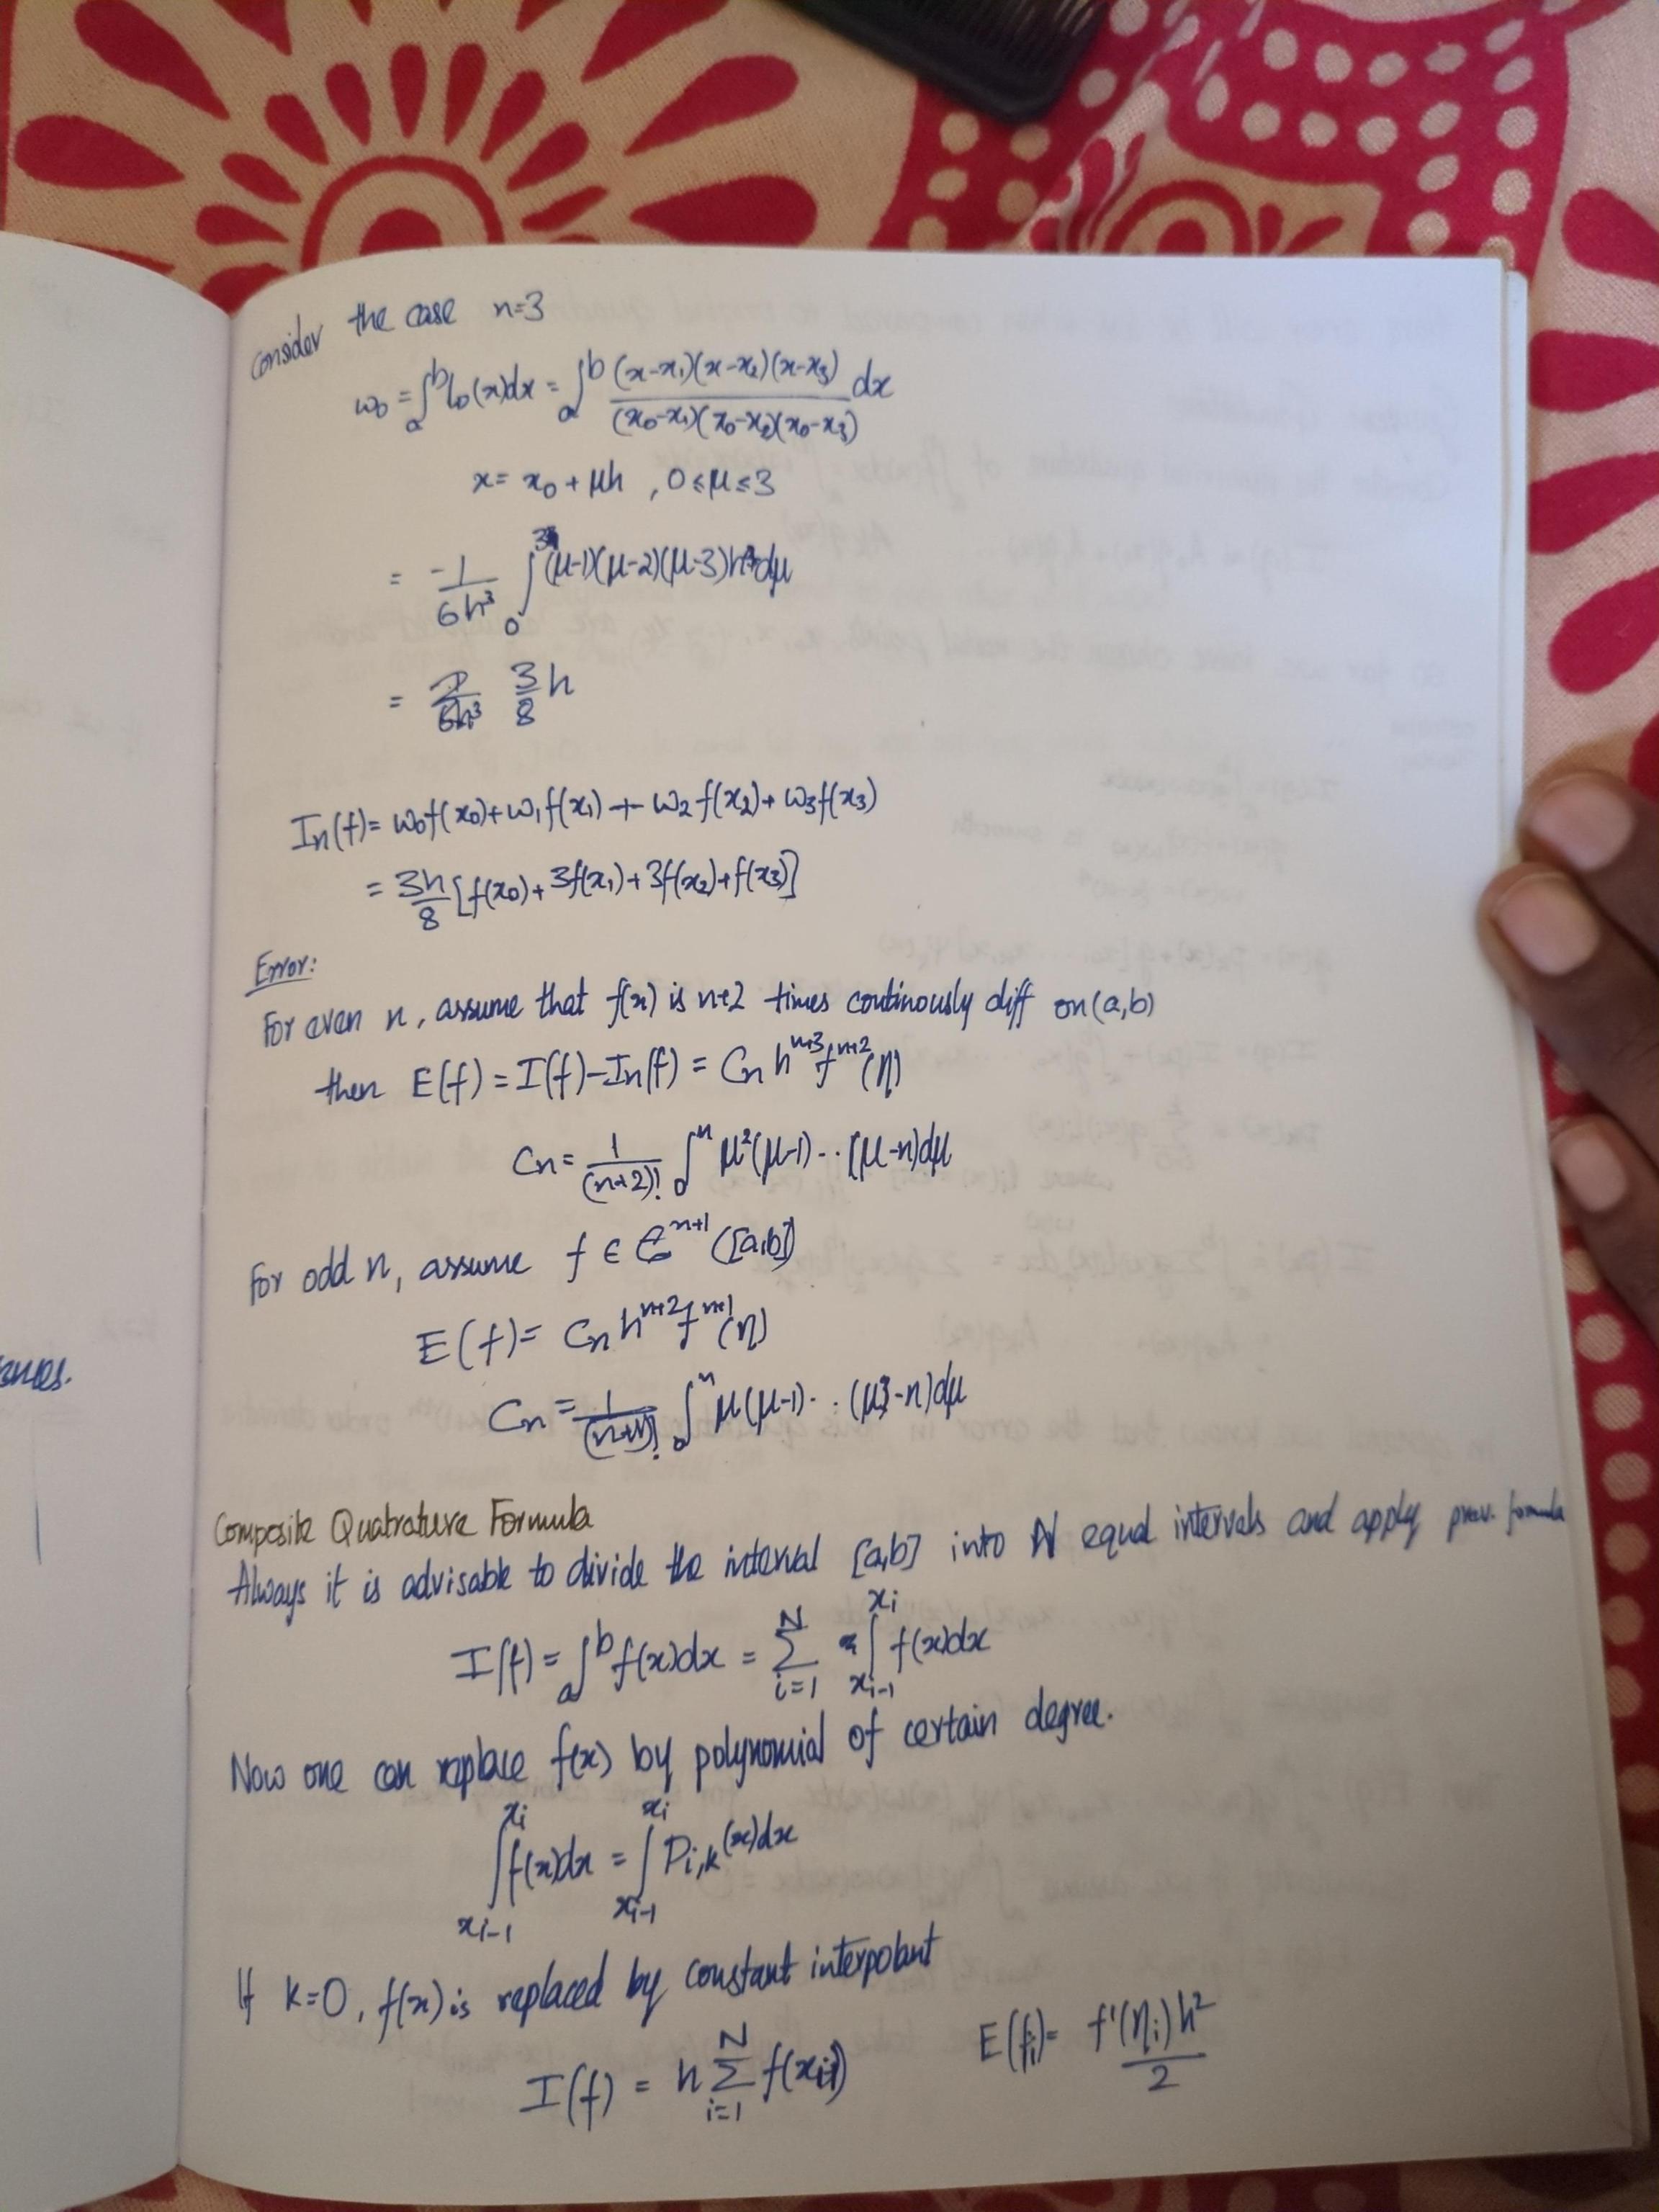 Consider the case n=3
w₀ = ∫ₐᵇ l₀(x)dx = ∫ₐᵇ (x-x₁)(x-x₂)(x-x₃) / (x₀-x₁)(x₀-x₂)(x₀-x₃) dx
x = x₀ + μh , 0≤μ≤3
= -1/6h³ ∫₀³ (μ-1)(μ-2)(μ-3)h⁴dμ
= 3/8 h
Iₙ(f) = w₀f(x₀)+w₁f(x₁)+w₂f(x₂)+w₃f(x₃)
= 3h/8 [f(x₀)+3f(x₁)+3f(x₂)+f(x₃)]
Error:
For even n, assume that f(x) is n+2 times continously diff on (a,b)
then E(f) = I(f)-Iₙ(f) = Cₙ hⁿ⁺³ fⁿ⁺²(η)
Cₙ = 1/(n+2)! ∫₀ⁿ μ²(μ-1)..(μ-n)dμ
For odd n, assume f ∈ Cⁿ⁺¹([a,b])
E(f) = Cₙ hⁿ⁺² fⁿ⁺¹(η)
Cₙ = 1/(n+1)! ∫₀ⁿ μ(μ-1)...(μ-n)dμ
Composite Quatrature Formula
Always it is advisable to divide the interval [a,b] into N equal intervals and apply prev. formula
I(f) = ∫ₐᵇ f(x)dx = Σᵢ₌₁ᴺ ∫_{xᵢ₋₁}^{xᵢ} f(x)dx
Now one can replace f(x) by polynomial of certain degree.
∫_{xᵢ₋₁}^{xᵢ} f(x)dx = ∫_{xᵢ₋₁}^{xᵢ} P_{i,k}(x)dx
If k=0, f(x) is replaced by constant interpolant
I(f) = h Σᵢ₌₁ᴺ f(xᵢ₋₁) E(fᵢ) = f'(ηᵢ)h²/2